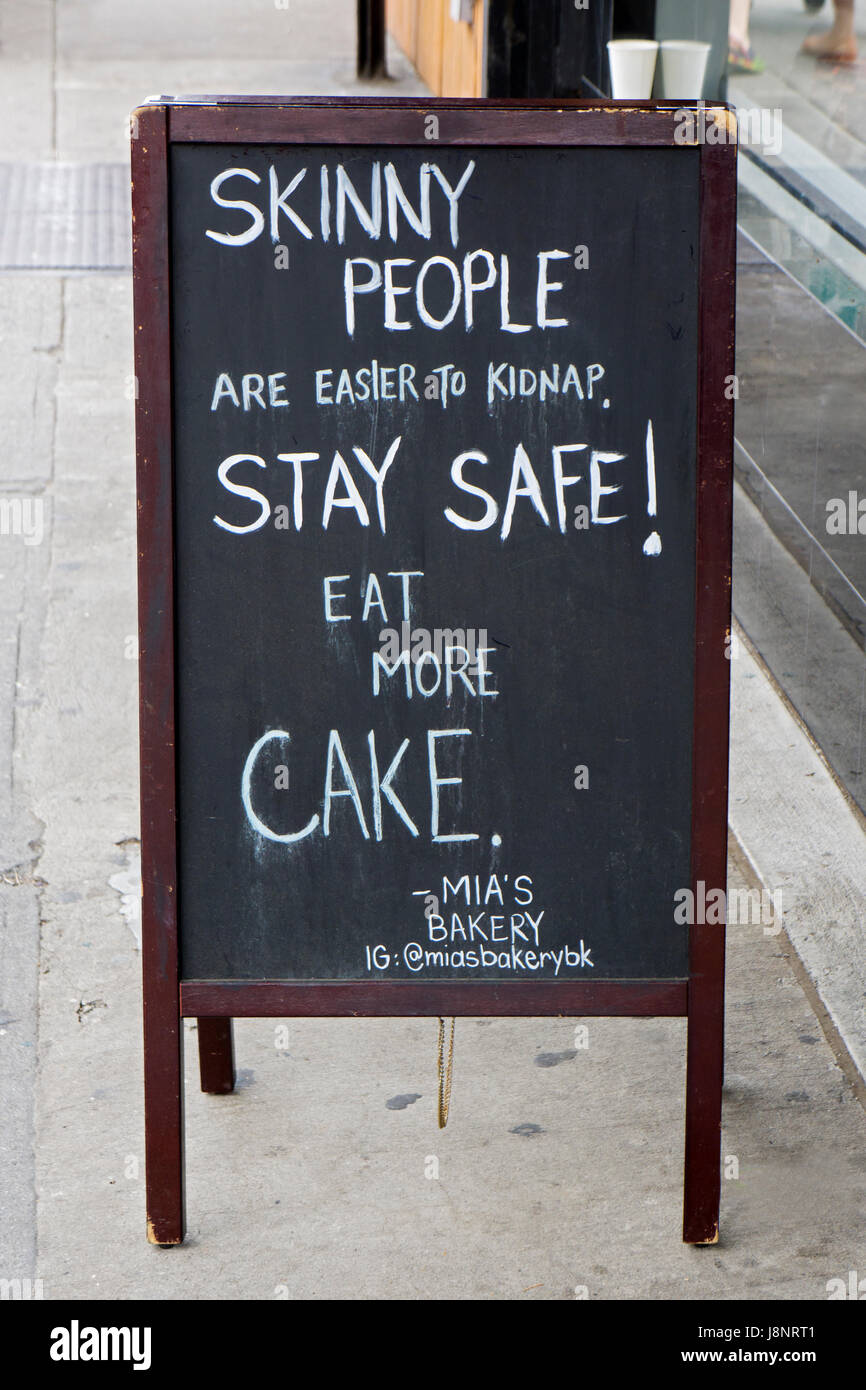 SKINNY
PEOPLE
ARE EASIER TO KIDNAP.
STAY SAFE!
EAT
MORE
CAKE.
- MIA'S
BAKERY
IG: @miasbakerybk
alamy stock photo
J8NRT1
www.alamy.com